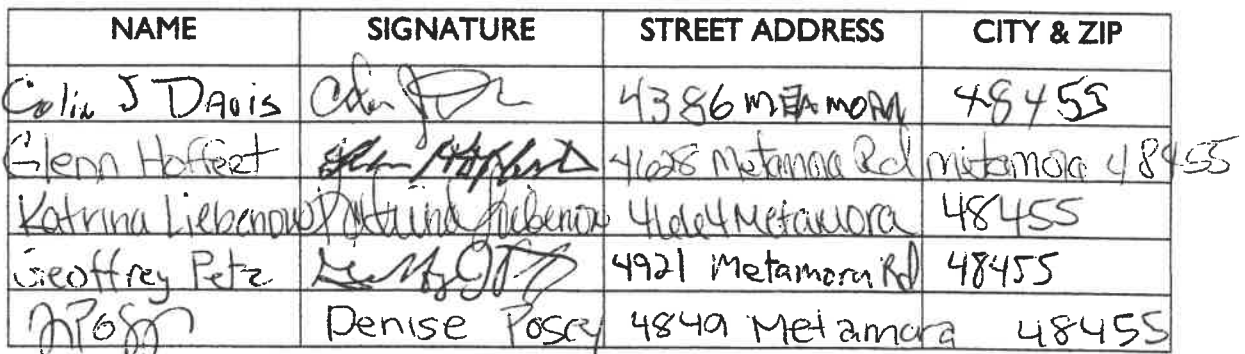 NAME SIGNATURE STREET ADDRESS CITY & ZIP
Colin J Davis 4386 METAMORA 48455
Glenn Hoffert 4628 Metamora Rd metamora 48455
Katrina Liebenow Katrina Liebenow Metamora 48455
Geoffrey Petz 4921 Metamora Rd 48455
Denise Posey 4849 Metamora 48455